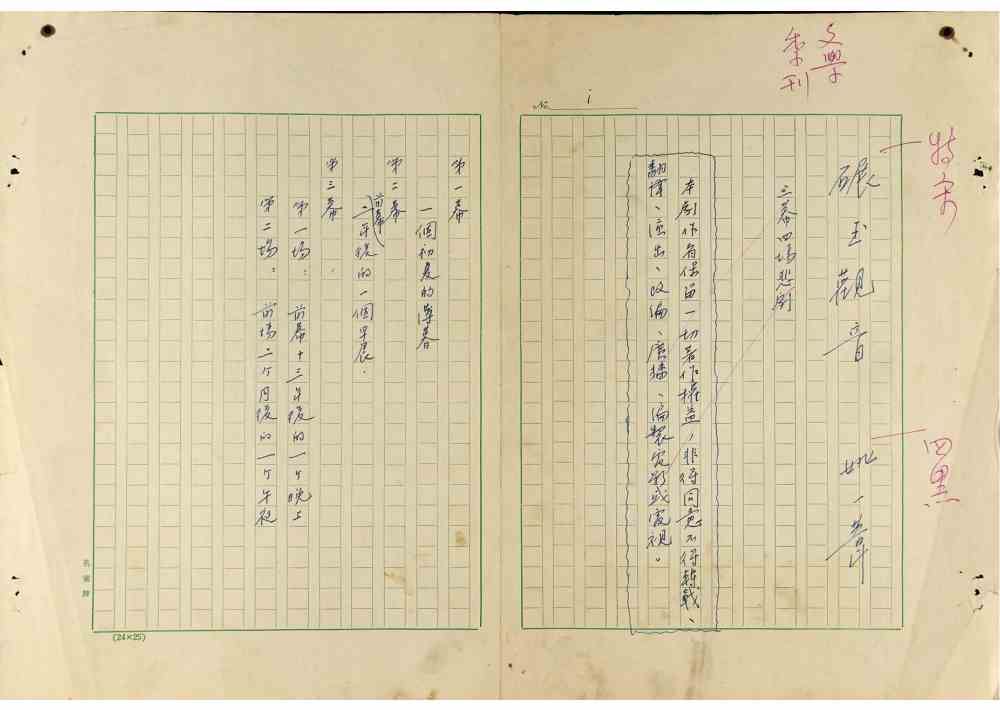 文學
季刊
No. 1
特宋
碾玉觀音
四黑
姚一葦
三幕四場悲劇
本劇作者保留一切著作權益，非得同意不得轉載、
翻譯、演出、改編、廣播、編製電影或電視。
第一幕
一個初夏的薄暮
第二幕
前幕二年後的一個早晨．
第三幕．
第一場： 前幕十三年後的一个晚上
第二場： 前場二个月後的一个午夜
名家牌
(24×25)